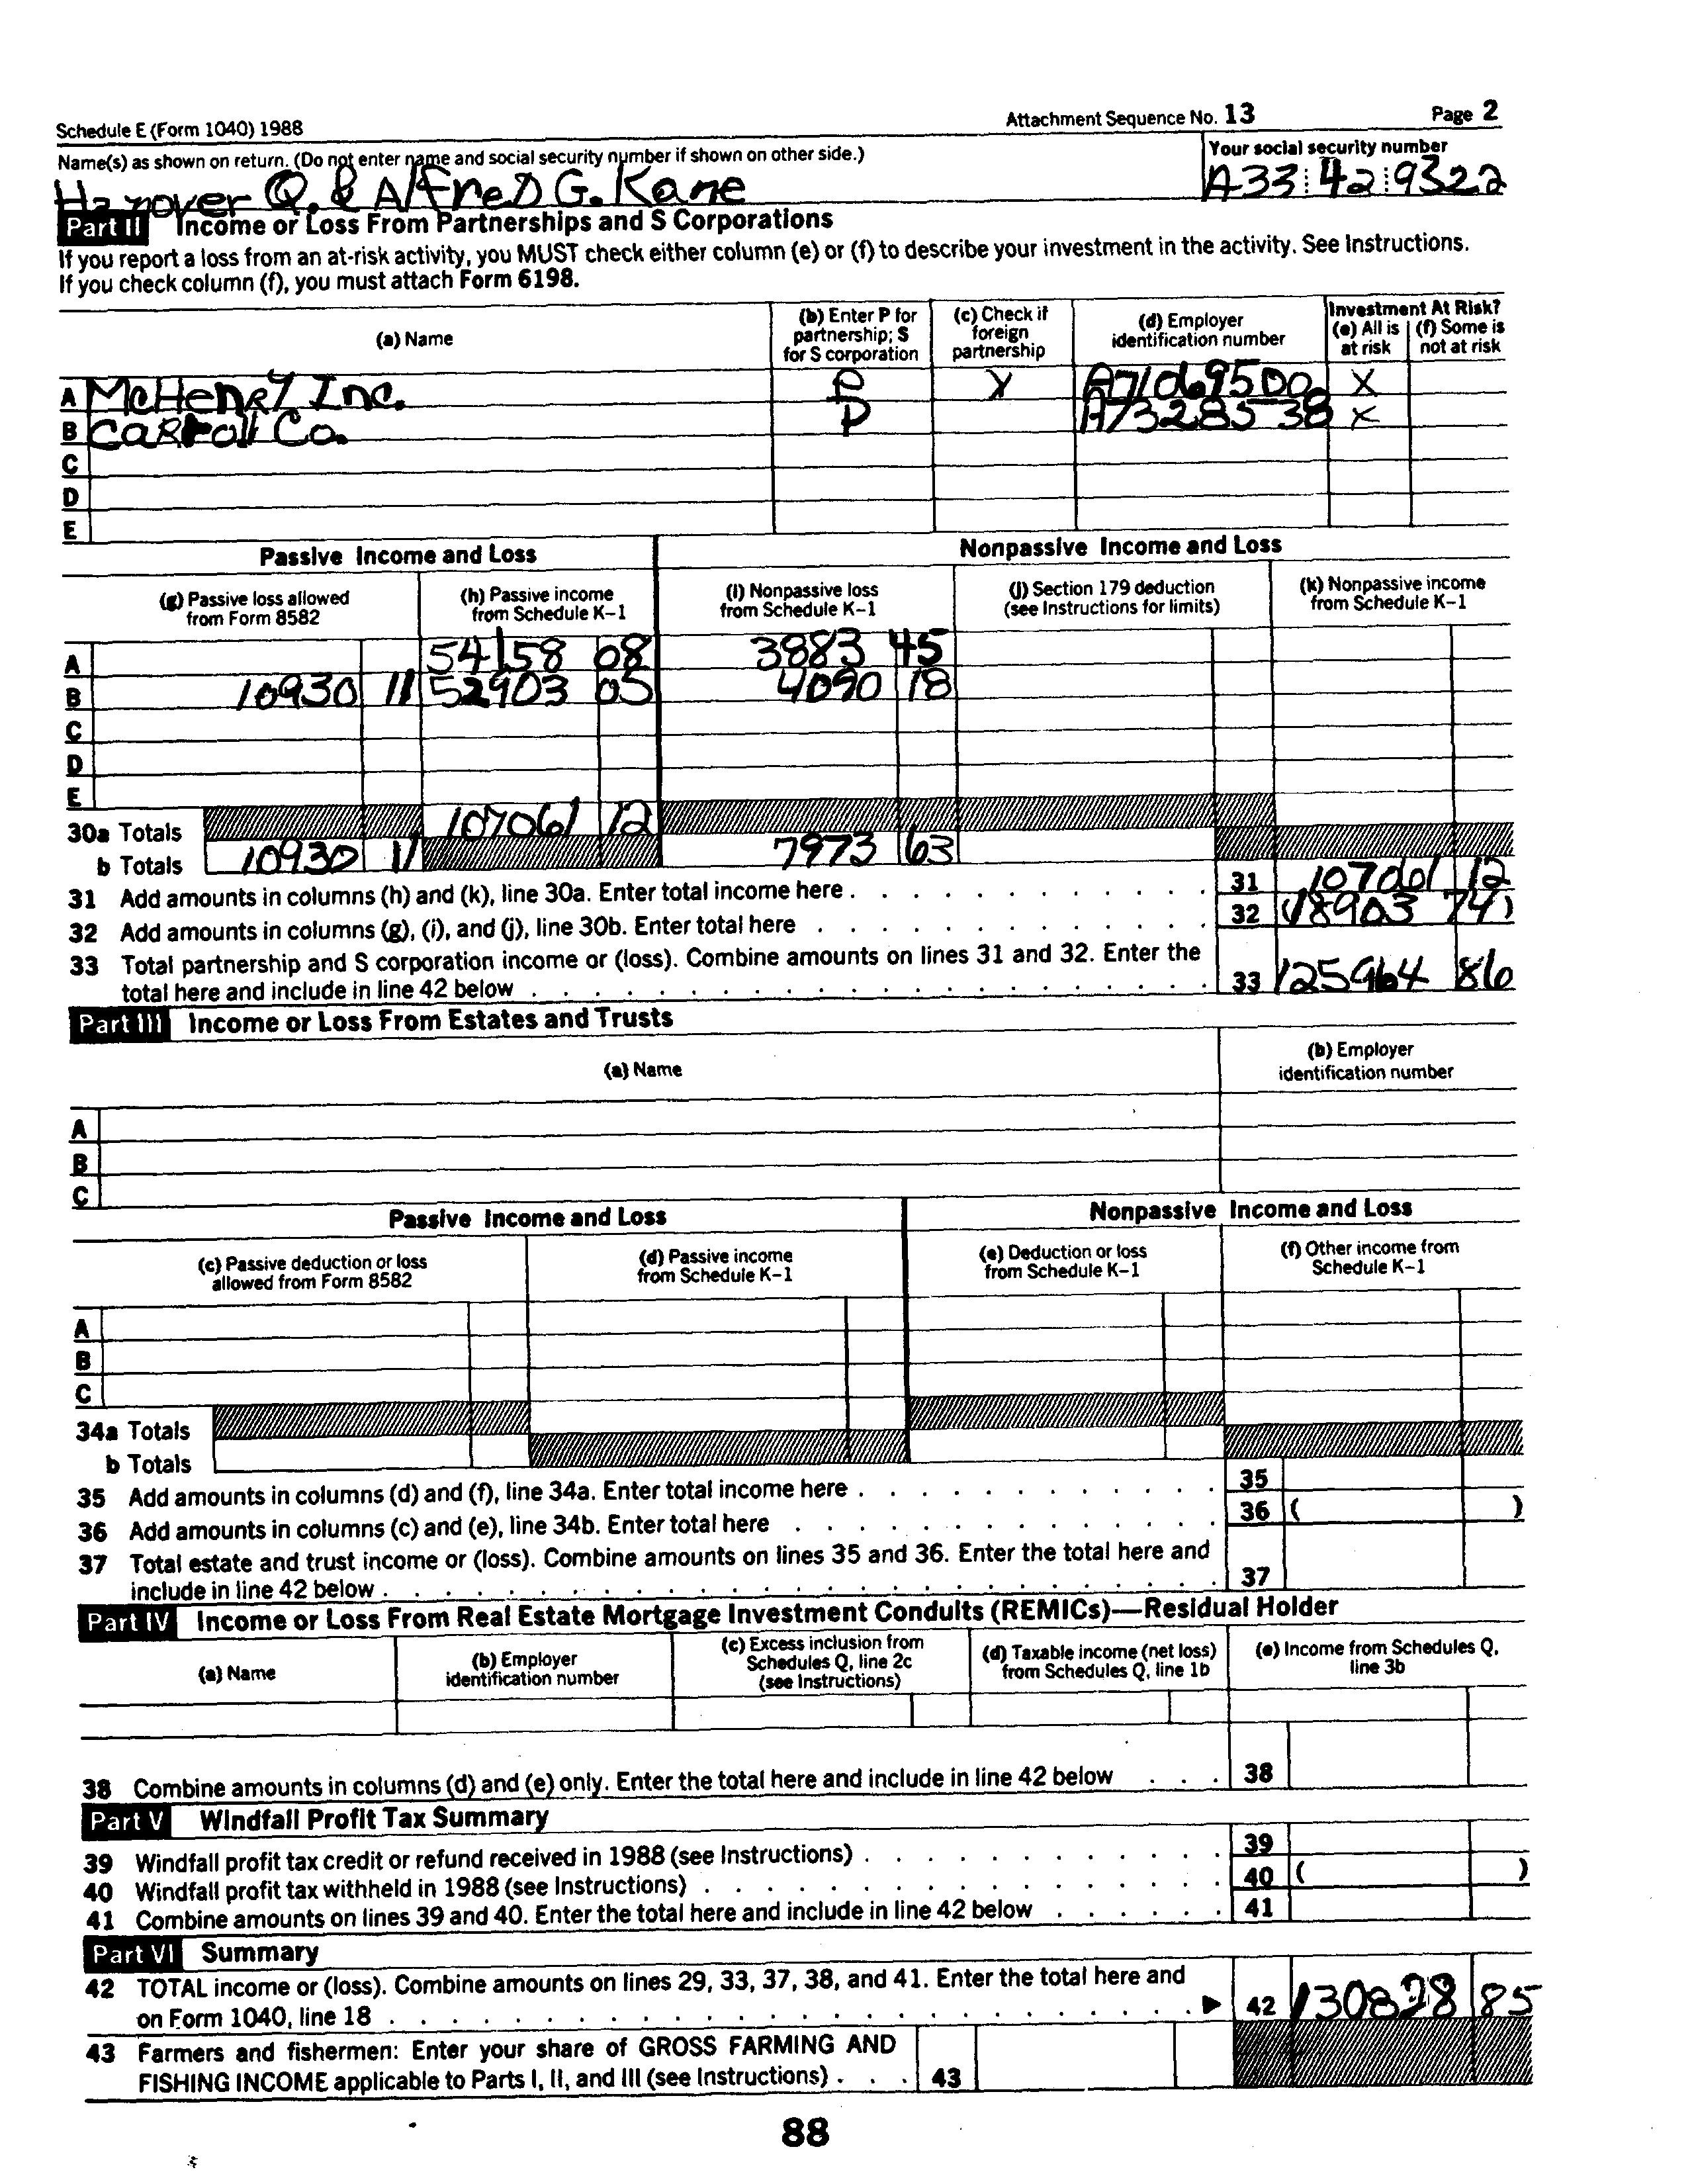 Schedule E (Form 1040) 1988 Attachment Sequence No. 13 Page 2
Name(s) as shown on return. (Do not enter name and social security number if shown on other side.) Your social security number
Hanover Q. & Alfred G. Kane A33 42 9322
Part II Income or Loss From Partnerships and S Corporations
If you report a loss from an at-risk activity, you MUST check either column (e) or (f) to describe your investment in the activity. See Instructions.
If you check column (f), you must attach Form 6198.
(a) Name (b) Enter P for partnership; S for S corporation (c) Check if foreign partnership (d) Employer identification number Investment At Risk? (e) All is at risk (f) Some is not at risk
A McHenry Inc. P X A71069500 X
B Carroll Co. P A7328538 X
C
D
E
Passive Income and Loss Nonpassive Income and Loss
(g) Passive loss allowed from Form 8582 (h) Passive income from Schedule K-1 (i) Nonpassive loss from Schedule K-1 (j) Section 179 deduction (see Instructions for limits) (k) Nonpassive income from Schedule K-1
A 54158 08 3883 45
B 10930 11 52903 05 4090 18
C
D
E
30a Totals 107061 12
b Totals 10930 11 7973 63
31 Add amounts in columns (h) and (k), line 30a. Enter total income here 31 107061 12
32 Add amounts in columns (g), (i), and (j), line 30b. Enter total here 32 (18903 74)
33 Total partnership and S corporation income or (loss). Combine amounts on lines 31 and 32. Enter the
total here and include in line 42 below 33 125964 86
Part III Income or Loss From Estates and Trusts
(a) Name (b) Employer identification number
A
B
C
Passive Income and Loss Nonpassive Income and Loss
(c) Passive deduction or loss allowed from Form 8582 (d) Passive income from Schedule K-1 (e) Deduction or loss from Schedule K-1 (f) Other income from Schedule K-1
A
B
C
34a Totals
b Totals
35 Add amounts in columns (d) and (f), line 34a. Enter total income here 35
36 Add amounts in columns (c) and (e), line 34b. Enter total here 36 ( )
37 Total estate and trust income or (loss). Combine amounts on lines 35 and 36. Enter the total here and
include in line 42 below 37
Part IV Income or Loss From Real Estate Mortgage Investment Conduits (REMICs)—Residual Holder
(a) Name (b) Employer identification number (c) Excess inclusion from Schedules Q, line 2c (see Instructions) (d) Taxable income (net loss) from Schedules Q, line 1b (e) Income from Schedules Q, line 3b
38 Combine amounts in columns (d) and (e) only. Enter the total here and include in line 42 below 38
Part V Windfall Profit Tax Summary
39 Windfall profit tax credit or refund received in 1988 (see Instructions) 39
40 Windfall profit tax withheld in 1988 (see Instructions) 40 ( )
41 Combine amounts on lines 39 and 40. Enter the total here and include in line 42 below 41
Part VI Summary
42 TOTAL income or (loss). Combine amounts on lines 29, 33, 37, 38, and 41. Enter the total here and
on Form 1040, line 18 42 130828 85
43 Farmers and fishermen: Enter your share of GROSS FARMING AND
FISHING INCOME applicable to Parts I, II, and III (see Instructions) 43
88